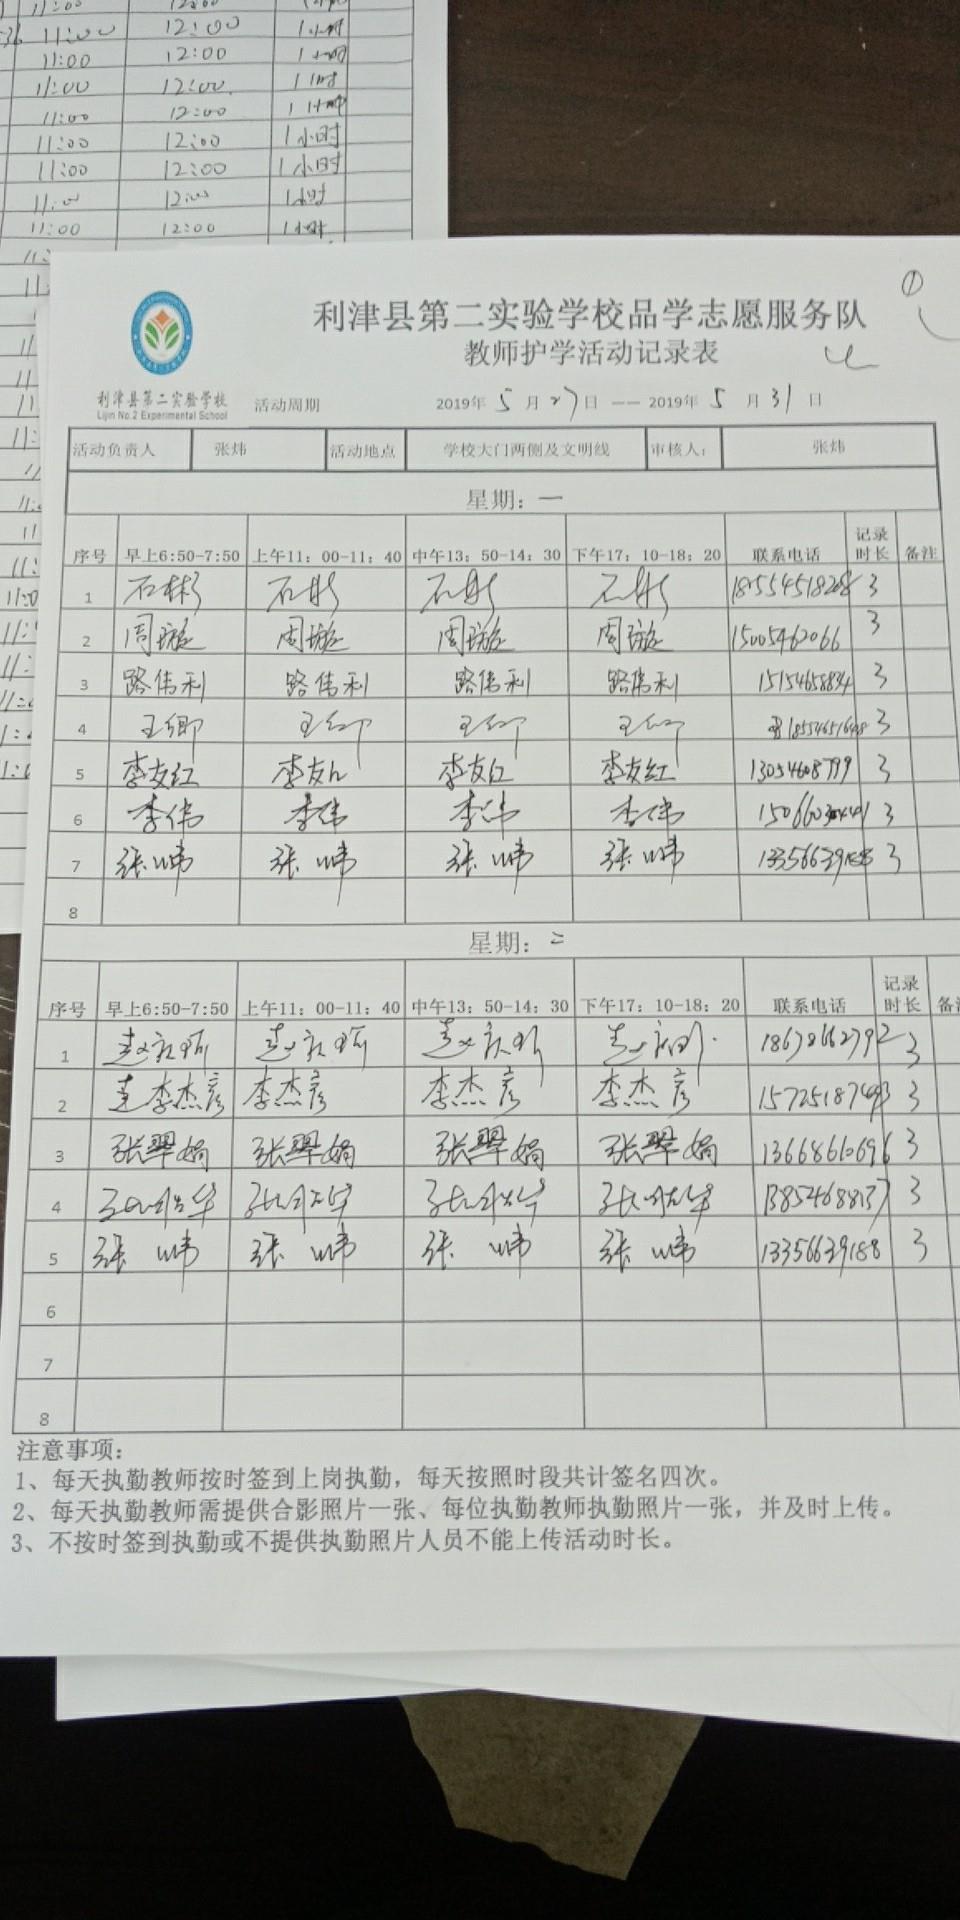 11:00 12:00 1小时
11:00 12:00 1小时
11:00 12:00 1小时
11:00 12:00 1小时
11:00 12:00 1小时
11:00 12:00 1小时
11:00 12:00 1小时
11:00 12:00 1小时
①
利津县第二实验学校品学志愿服务队
教师护学活动记录表
利津县第二实验学校
Lijin No.2 Experimental School
活动周期 2019年 5 月 27 日 —— 2019年 5 月 31 日
活动负责人 张炜 活动地点 学校大门两侧及文明线 审核人: 张炜
星期: 一
序号 早上6:50-7:50 上午11: 00-11: 40 中午13: 50-14: 30 下午17: 10-18: 20 联系电话 记录时长 备注
1 石彬 石彬 石彬 石彬 3
2 周璇 周璇 周璇 周璇 15005462066 3
3 路伟利 路伟利 路伟利 路伟利 15154658834 3
4 王卿 王卿 王卿 王卿 3
5 李友红 李友红 李友红 李友红 13054608799 3
6 李伟 李伟 李伟 李伟 3
7 张炜 张炜 张炜 张炜 13356639188 3
8
星期: 二
序号 早上6:50-7:50 上午11: 00-11: 40 中午13: 50-14: 30 下午17: 10-18: 20 联系电话 记录时长 备注
1 18678662792 3
2 李杰彦 李杰彦 李杰彦 李杰彦 3
3 张翠娟 张翠娟 张翠娟 张翠娟 13668610696 3
4 13854688137 3
5 张炜 张炜 张炜 张炜 13356639188 3
6
7
8
注意事项:
1、每天执勤教师按时签到上岗执勤，每天按照时段共计签名四次。
2、每天执勤教师需提供合影照片一张、每位执勤教师执勤照片一张，并及时上传。
3、不按时签到执勤或不提供执勤照片人员不能上传活动时长。